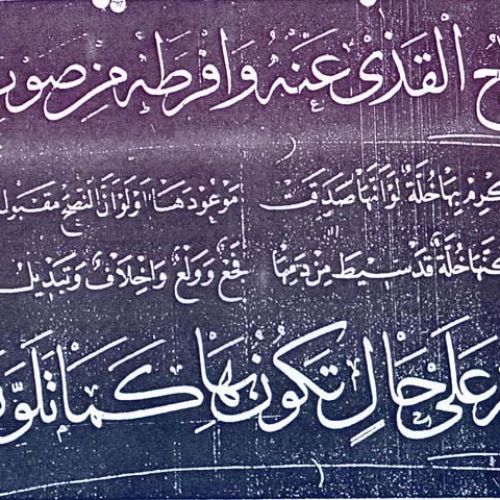 ح الْقَذٰى عَنْهُ وَافْرَطَهُ مِنْ صَوْبِ
كْرِمْ بِهَا خُلَّةً لَوْ اَنَّهَا صَدَقَتْ مَوْعُودَهَا اَوْ لَوْ اَنَّ النُّصْحَ مَقْبُولُ
كِنَّهَا خُلَّةٌ قَدْ سِيطَ مِنْ دَمِهَا فَجْعٌ وَوَلْعٌ وَاِخْلَافٌ وَتَبْدِيلُ
عَلَى حَالٍ تَكُونُ بِهَا كَمَا تَلَوَّ